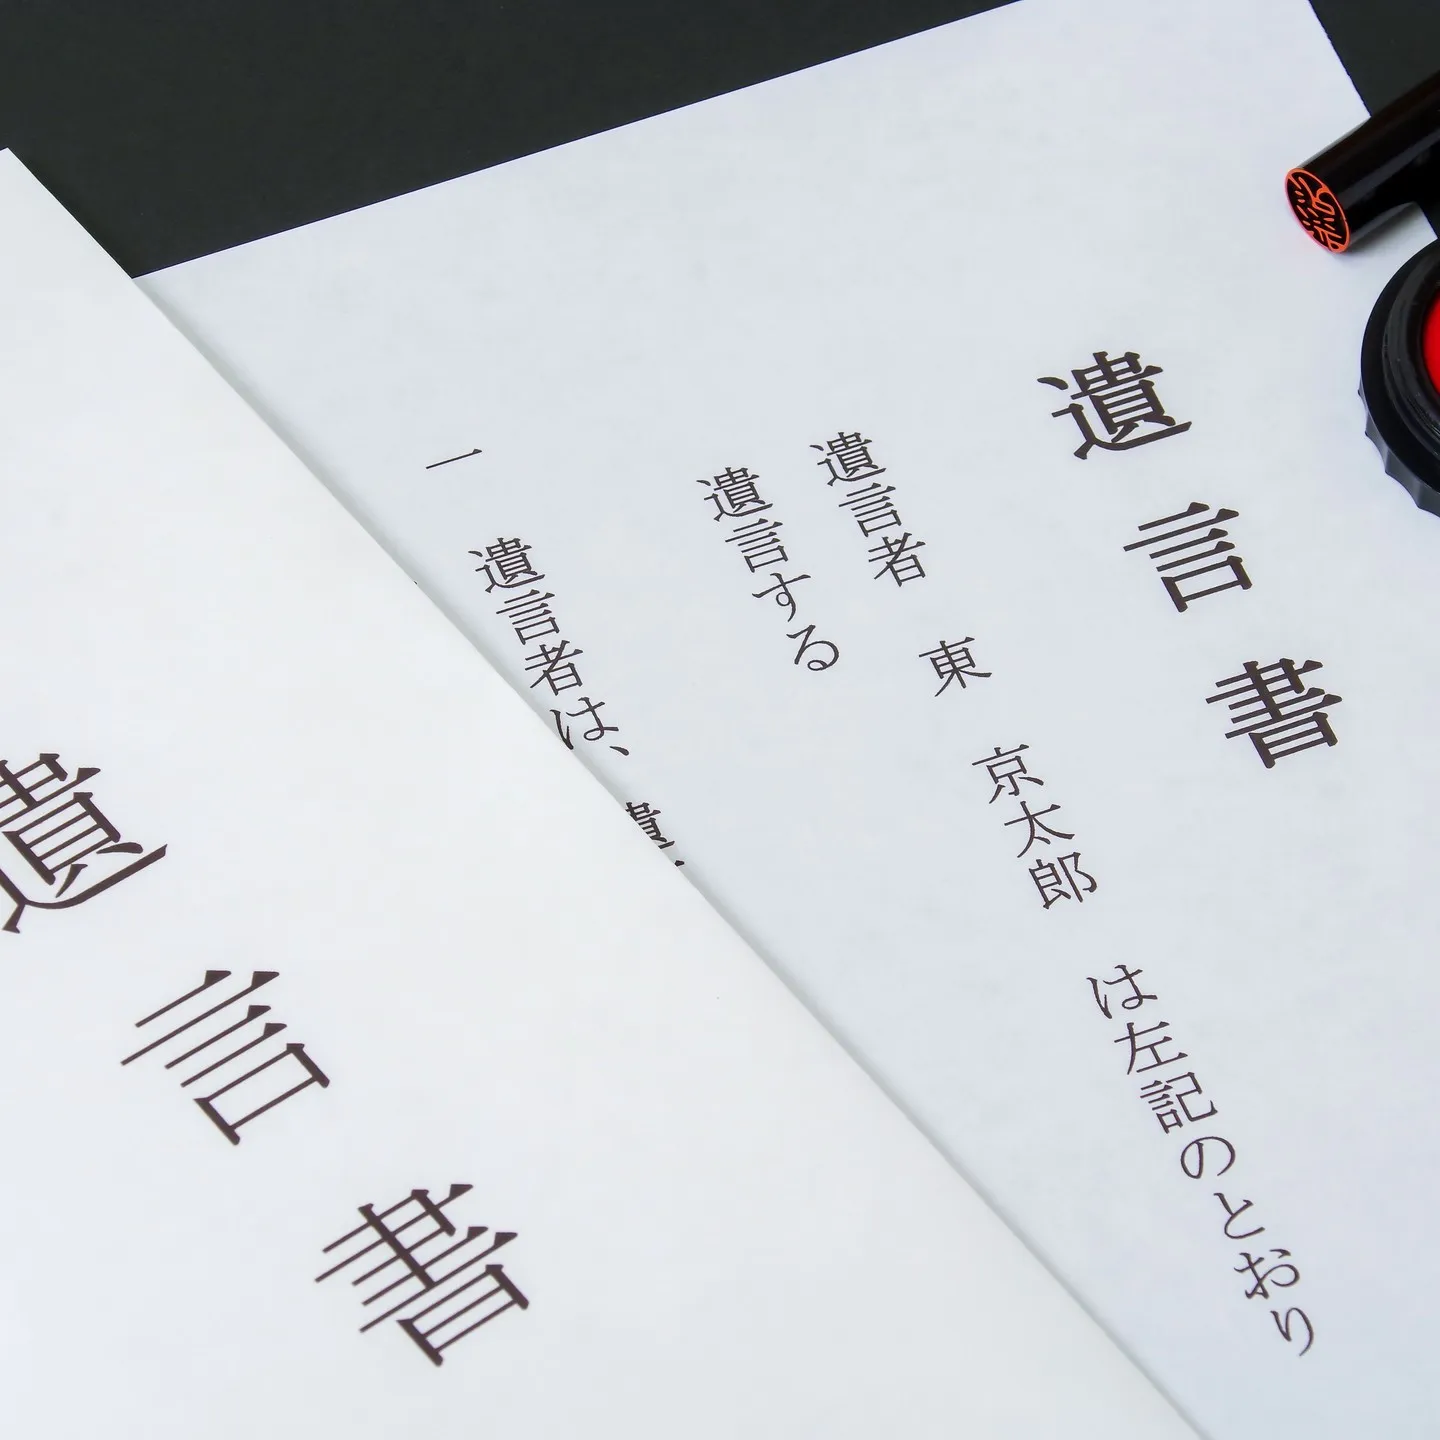 遺言書
遺言者 東 京太郎 は左記のとおり
遺言する
一 遺言者は、遺
遺言書